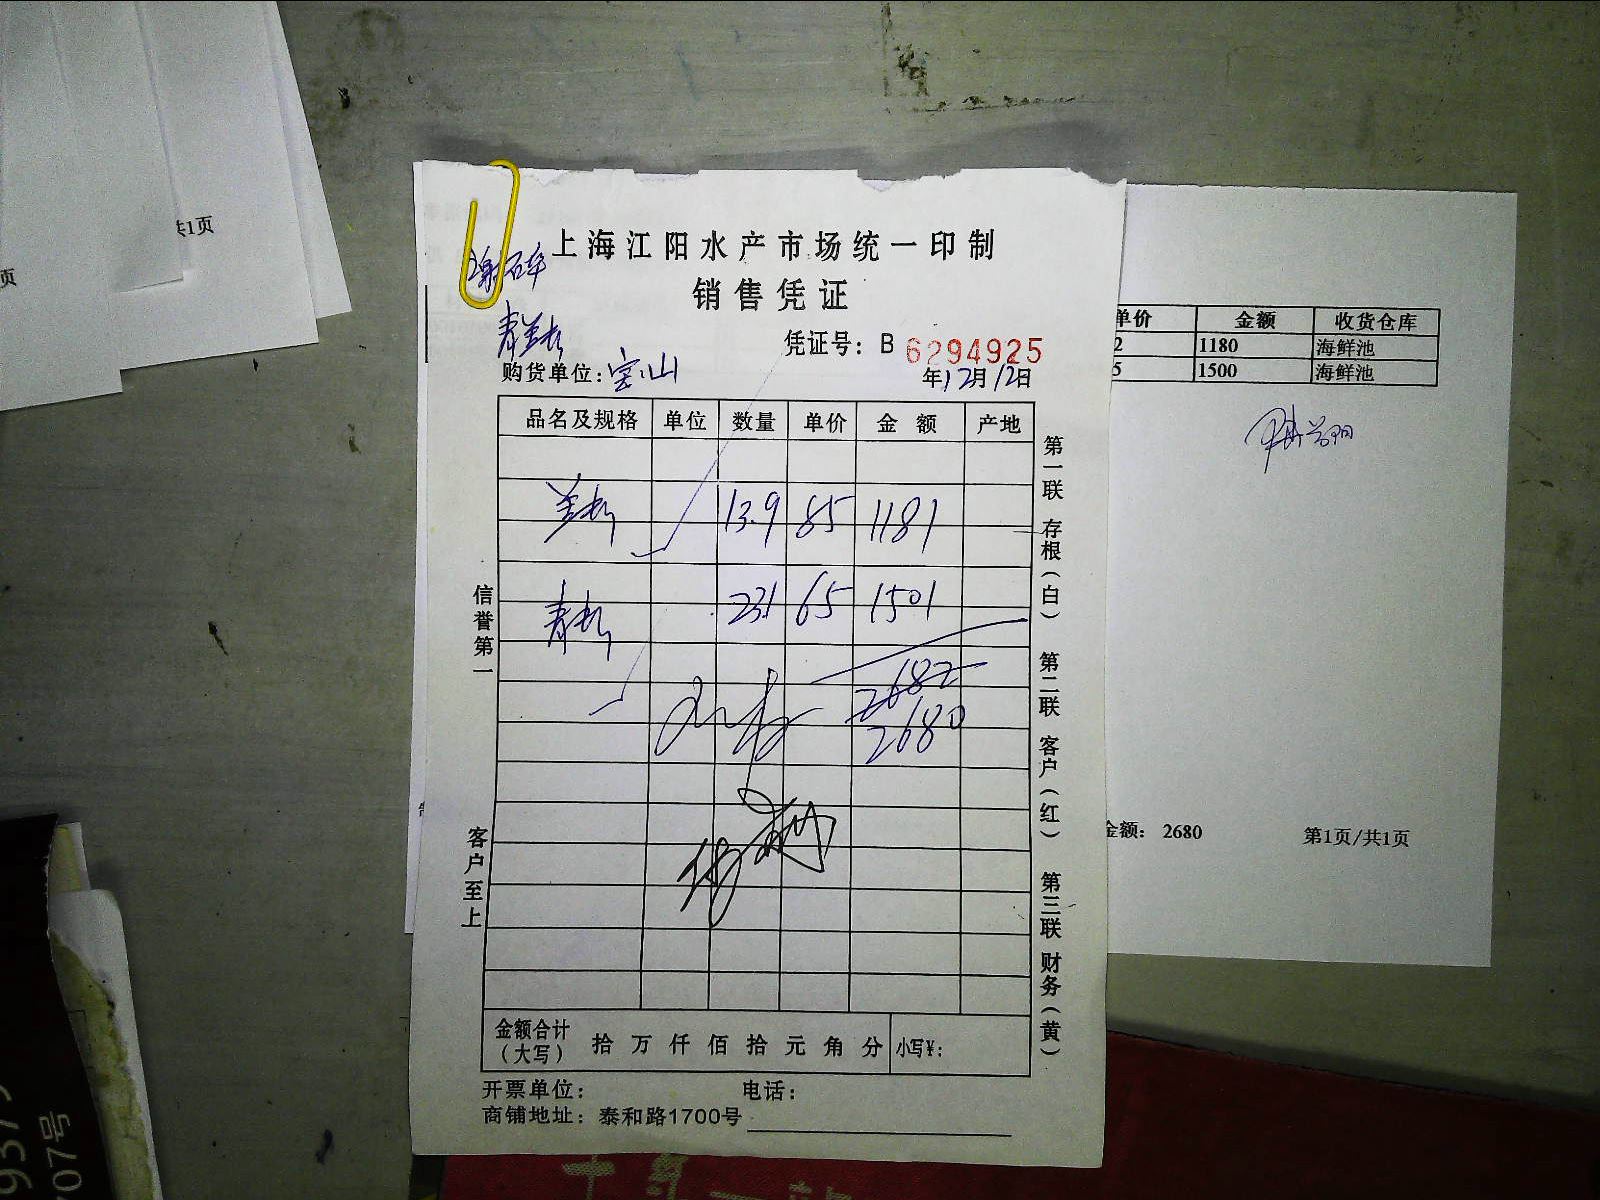 共1页
页
上海江阳水产市场统一印制
销售凭证
凭证号：B 6294925
购货单位：宝山
年12月12日
品名及规格 单位 数量 单价 金额 产地
兰 13.9 85 1181
青 23.1 65 1501
2682
2680
金额合计（大写） 拾 万 仟 佰 拾 元 角 分 小写¥：
开票单位： 电话：
商铺地址：泰和路1700号
信誉第一
客户至上
第一联 存根（白） 第二联 客户（红） 第三联 财务（黄）
单价 金额 收货仓库
2 1180 海鲜池
5 1500 海鲜池
金额： 2680
第1页/共1页
9375
707号